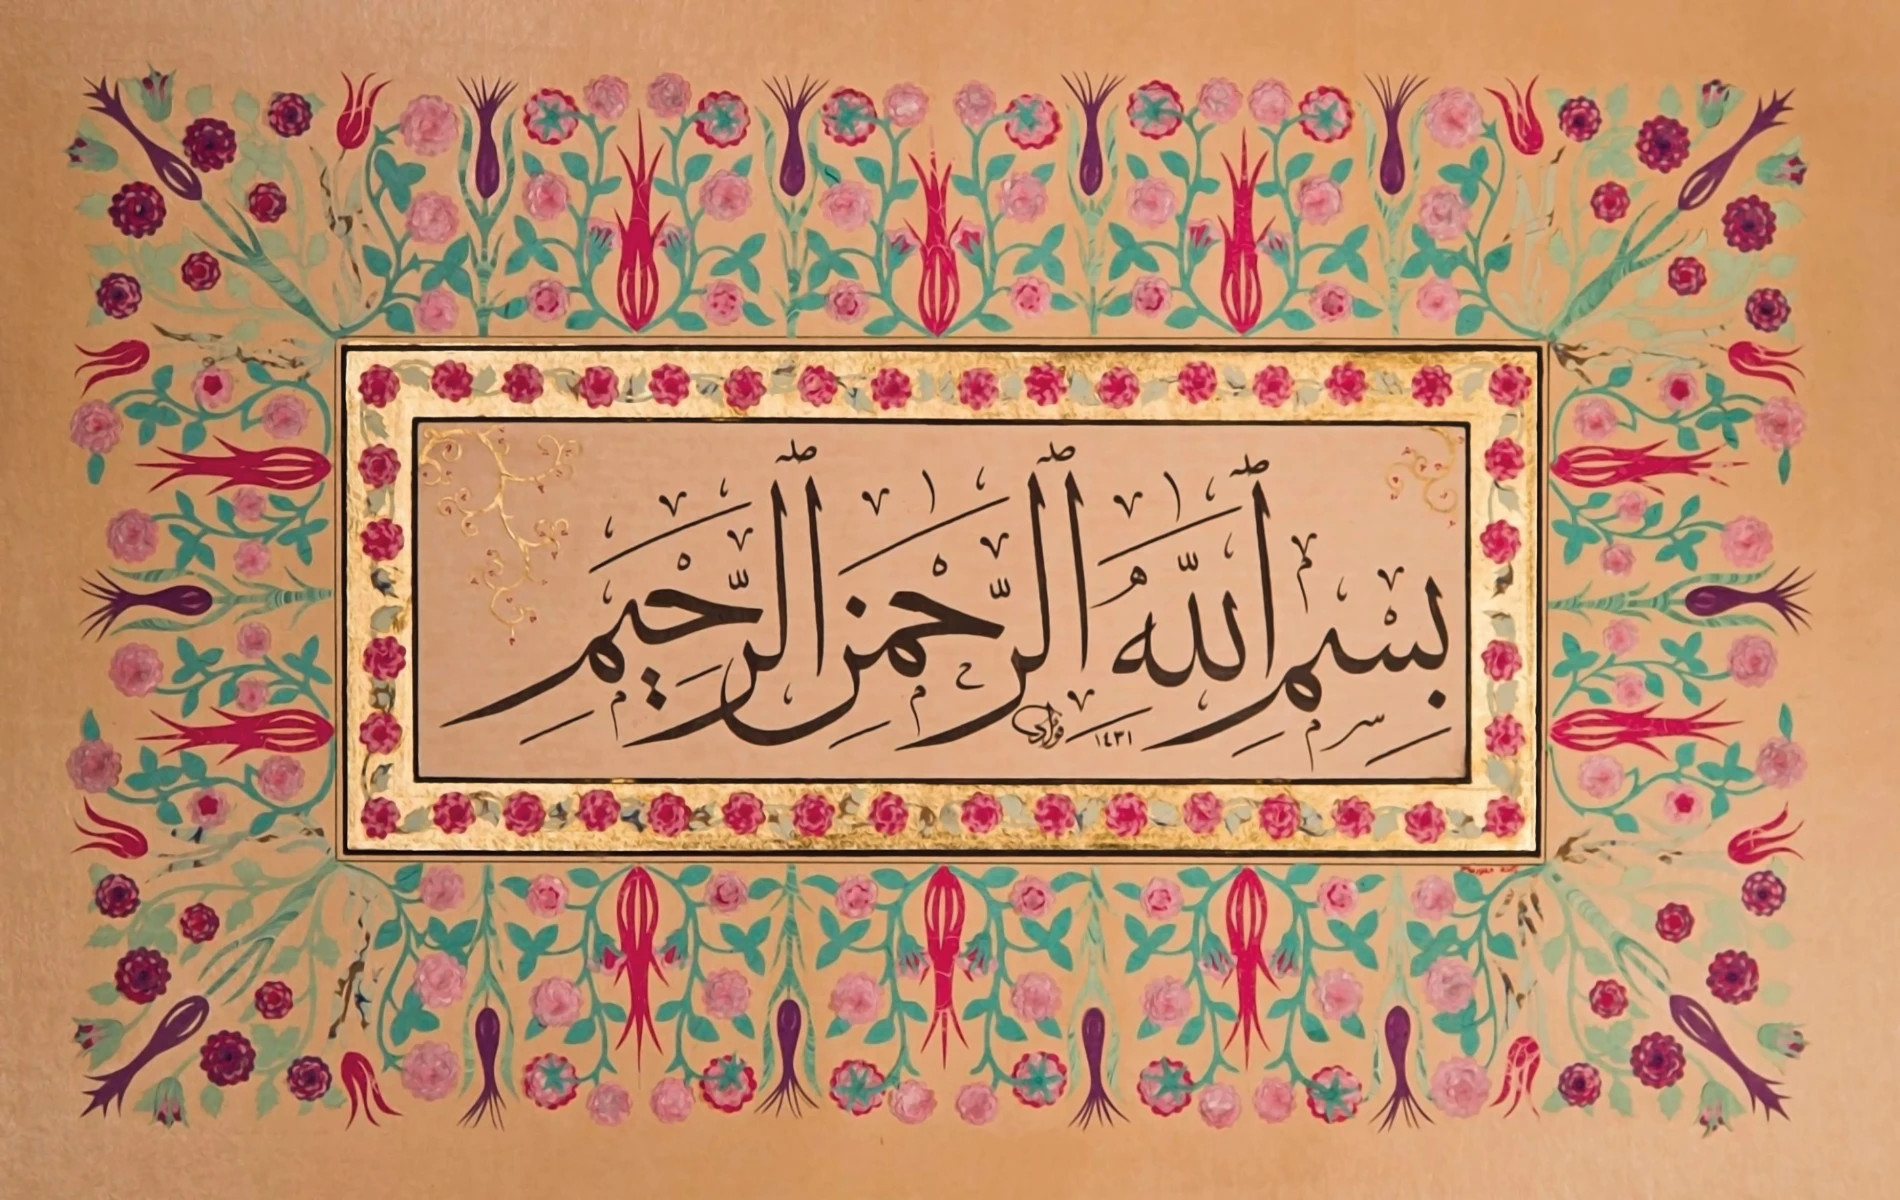 بِسْمِ ٱللَّهِ ٱلرَّحْمَٰنِ ٱلرَّحِيمِ
فؤاد ١٤٣١